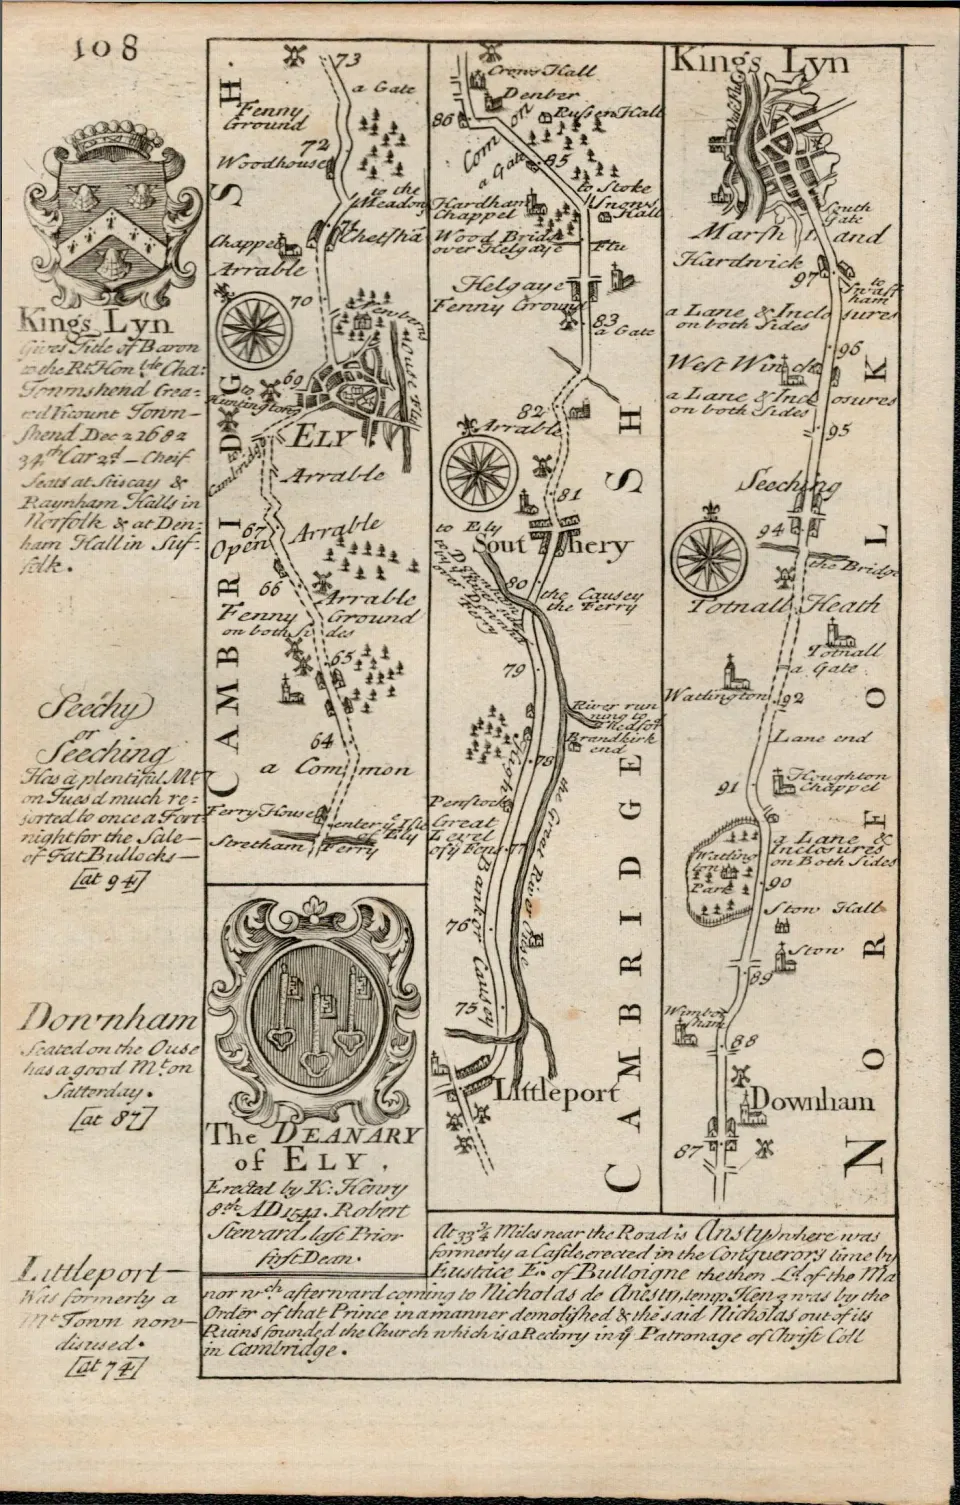 108
Kings Lyn
Gives Title of Baron
to the Rt Hon ble Cha:
Townshend Crea-
ted Vicount Town-
shend Dec 2 1682
34th Car 2d - Cheif
Seats at Stiscay &
Raynham Halls in
Norfolk & at Den:
ham Hall in Suf-
folk.
Seechy
or
Seeching
Has a plentiful Mt
on Tuesd much re:
sorted to once a Fort
night for the Sale -
of Fat Bullocks -
[at 94]
Downham
Seated on the Ouse
has a good Mt on
Satterday.
[at 87]
Littleport -
Was formerly a
Mt Town now -
disused.
[at 74]
CAMBRIDGSH.
73
a Gate
Fenny
Ground
72
Woodhouse
to the
Meadow
71
Chetsha
Chappel
Arrable
70
Newbarns
Ouse Flu
69
to
Huntington
ELY
to
Cambridge
Arrable
67
Arrable
Open
66
Arrable
Fenny Ground
on both Sides
65
64
a Common
Ferry House
enter ye Isle
of Ely
Stretham Ferry
The DEANARY
of ELY,
Erected by K: Henry
8th AD 1541. Robert
Steward, last Prior
first Dean.
Crows Hall
Denber
Russen Hall
86
Common
a Gate
85
to Stoke
Hardham
Chappel
Snows
Hall
Wood Bridge
over Helgaye
Flu
Helgaye
Fenny Ground
83
a Gate
82
Arrable
81
to Ely
Southery
80
the Causey
the Ferry
79
River run
ning to
Brandkirk
end
78
High
Penstock
Great
Level
of ye Fens
77
the Great River Ouse
Bank or Causey
76
75
Littleport
CAMBRIDGESH
Kings Lyn
South
Gate
Marshland
Hardwick
97
to
Swaff
ham
a Lane & Inclosures
on both Sides
96
West Winch
a Lane & Inclosures
on both Sides
95
Seeching
94
the Bridge
Totnall Heath
Totnall
a Gate
Watlington
92
Lane end
91
Houghton
Chappel
a Lane &
Inclosures
on Both Sides
Watling
ton
Park
90
Stow Hall
Stow
89
Wimbot
sham
88
Downham
87
NORFOLK
At 33 3/4 Miles near the Road is Ansty, where was
formerly a Castle, erected in the Conquerors time by
Eustice E. of Bulloigne the then Ld. of the Ma
nor wch. afterward coming to Nicholas de Anesty, temp. Hen 3 was by the
Order of that Prince in a manner demolished & the said Nicholas out of its
Ruins founded the Church which is a Rectory in ye Patronage of Christ Coll
in Cambridge.